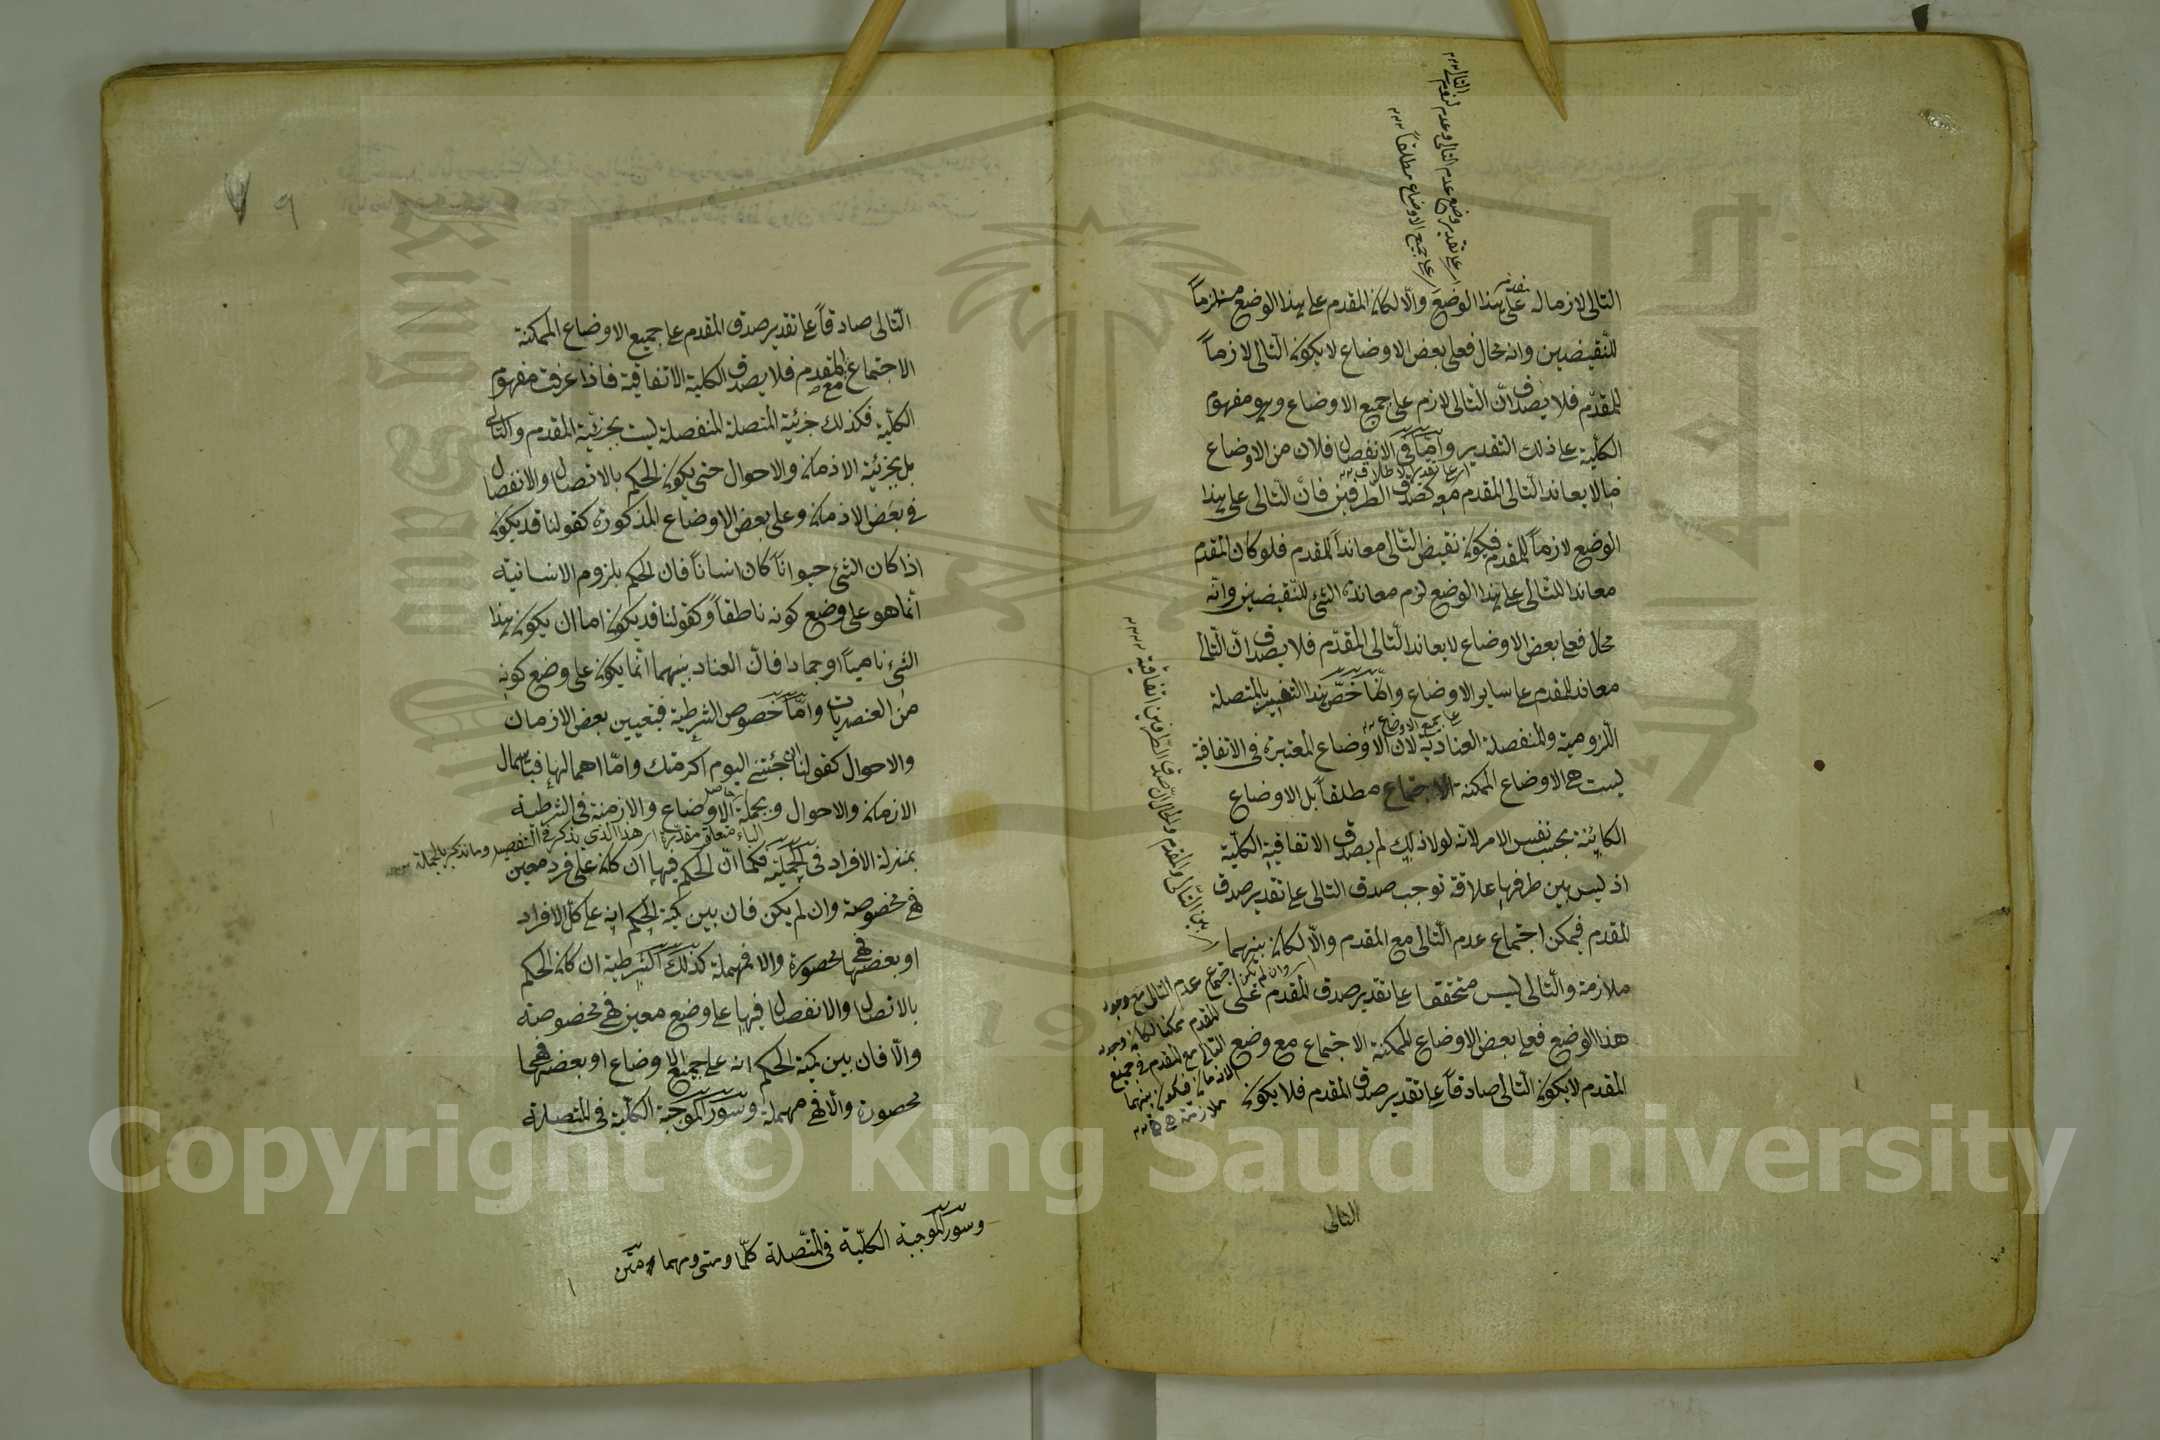 التالى لازما له على هذا الوضع والا لكان المقدم على هذا الوضع مستلزماً
للنقيضين وانه محال فعلى بعض الاوضاع لا يكون التالى لازماً
للمقدم فلا يصدق ان التالى لازم على جميع الاوضاع وهو مفهوم
الكلية على ذلك التقدير واما فى الانفصال فلان من الاوضاع
مالا يعاند التالى المقدم معه كصدق الطرفين فان التالى على هذا
الوضع لازماً للمقدم فيكون نقيض التالى معانداً للمقدم فلو كان المقدم
معاندا للتالى على هذا الوضع لزم معاندة الشئ للنقيضين وانه
محال فعلى بعض الاوضاع لا يعاند التالى المقدم فلا يصدق ان التالى
معاند للمقدم على ساير الاوضاع وانما خص هذا التفسير بالمتصلة
اللزومية والمنفصلة العنادية لان الاوضاع المعتبرة فى الاتفاقية
ليست هى الاوضاع الممكنة الاجتماع مطلقاً بل الاوضاع
الكائنة بحسب نفس الامر لانه لولا ذلك لم يصدق الاتفاقية الكلية
اذ ليس بين طرفيها علاقة توجب صدق التالى على تقدير صدق
المقدم فيمكن اجتماع عدم التالى مع المقدم والا لكان بينهما
ملازمة والتالى ليس متحققا على تقدير صدق المقدم على
هذا الوضع فعلى بعض الاوضاع الممكنة الاجتماع مع وضع
المقدم لا يكون التالى صادقاً على تقدير صدق المقدم فلا يكون
التالى
اى على تقدير وضع عدم التالى وعدم لزوم التالى
اى على جميع الاوضاع مطلقاً
اى على تقدير الاطلاق
اى على جميع الاوضاع
اى بين التالى والمقدم والحال ان صدق الطرفين اتفاقية
اى وان لم يكن اجتماع عدم التالى مع وجود
المقدم ممكنا لكان وجود
التالى مع المقدم فى جميع
الازمان فيكون بينهما
ملازمة
التالى صادقاً على تقدير صدق المقدم على جميع الاوضاع الممكنة
الاجتماع مع المقدم فلا يصدق الكلية الاتفاقية فاذا عرفت مفهوم
الكلية فكذلك جزئية المتصلة المنفصلة ليست بجزئية المقدم والتالى
بل بجزئية الازمان والاحوال حتى يكون الحكم بالاتصال والانفصال
فى بعض الازمان وعلى بعض الاوضاع المذكورة كقولنا قد يكون
اذا كان الشئ حيواناً كان انساناً فان الحكم بلزوم الانسانية
انما هو على وضع كونه ناطقاً وكقولنا قد يكون اما ان يكون هذا
الشئ نامياً او جمادا فان العناد بينهما انما يكون على وضع كونه
من العنصريات واما خصوص الشرطية فبتعيين بعض الازمان
والاحوال كقولنا ان جئتنى اليوم اكرمتك واما اهمالها فباهمال
الازمان والاحوال وبجملة الاوضاع والازمنة فى الشرطية
الباء متعلق مقدر اى هذا الذى يذكر فى التفصيل وما نذكر بالجملة
بمنزلة الافراد فى الحملية فكما ان الحكم فيها ان كان على فرد معين
فهى مخصوصة وان لم يكن فان بين كمية الحكم انه على كل الافراد
او بعضها فهى محصورة والا فمهملة كذلك الشرطية ان كان الحكم
بالاتصال والانفصال فيها على وضع معين فهى مخصوصة
والا فان بين كمية الحكم انه على جميع الاوضاع او بعضها فهى
محصورة والا فهى مهملة وسور الموجبة الكلية فى المتصلة
وسور الموجبة الكلية فى المتصلة كلما ومتى ومهما متن
Copyright © King Saud University